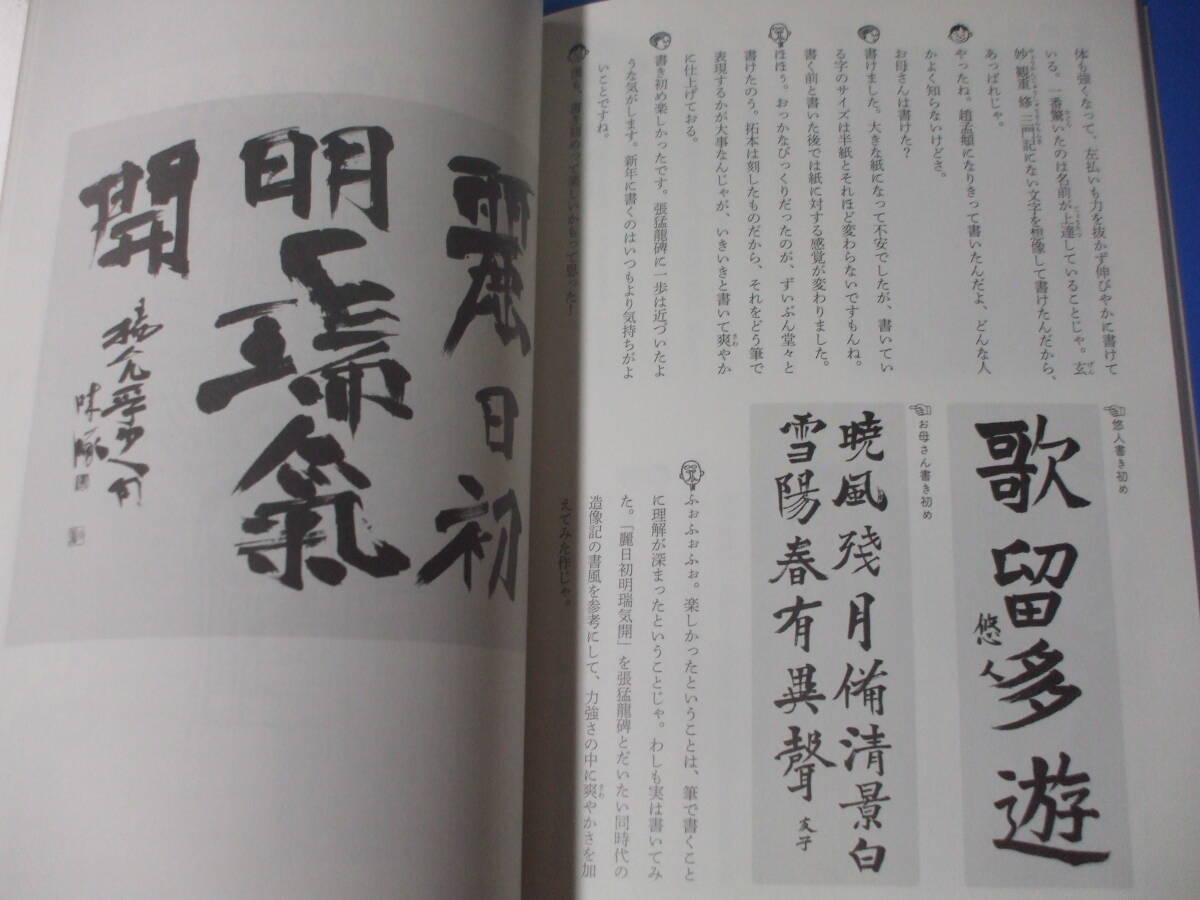 体も強くなって、左払いも力を抜かず伸びやかに書けて
いる。一番驚いたのは名前が上達していることじゃ。玄
妙観重修三門記にない文字を想像して書けたんだから、
あっぱれじゃ。
やったね。趙孟頫になりきって書いたんだよ、どんな人
かよく知らないけどさ。
お母さんは書けた？
書けました。大きな紙になって不安でしたが、書いてい
る字のサイズは半紙とそれほど変わらないですもんね。
書く前と書いた後では紙に対する感覚が変わりました。
ほほぅ。おっかなびっくりだったのが、ずいぶん堂々と
書けたのう。拓本は刻したものだから、それをどう筆で
表現するかが大事なんじゃが、いきいきと書いて爽やか
に仕上げておる。
書き初め楽しかったです。張猛龍碑に一歩は近づいたよ
うな気がします。新年に書くのはいつもより気持ちがよ
いことですね。
僕も、書き初めって楽しいかもって思った！
悠人書き初め
歌留多遊
悠人
お母さん書き初め
暁風残月備清景白
雪陽春有異聲
友子
ふぉふぉふぉ。楽しかったということは、筆で書くこと
に理解が深まったということじゃ。わしも実は書いてみ
た。「麗日初明瑞気開」を張猛龍碑とだいたい同時代の
造像記の書風を参考にして、力強さの中に爽やかさを加
えてみた作じゃ。
麗日初
明瑞氣
開